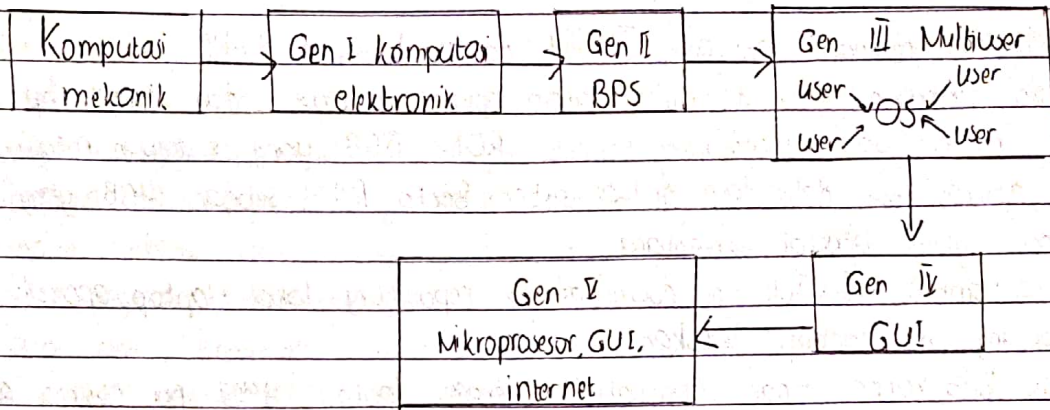 Komputasi
mekanik
Gen I komputasi
elektronik
Gen II
BPS
Gen III Multiuser
user
user
OS
user
user
Gen IV
GUI
Gen V
Mikroprosesor, GUI,
internet